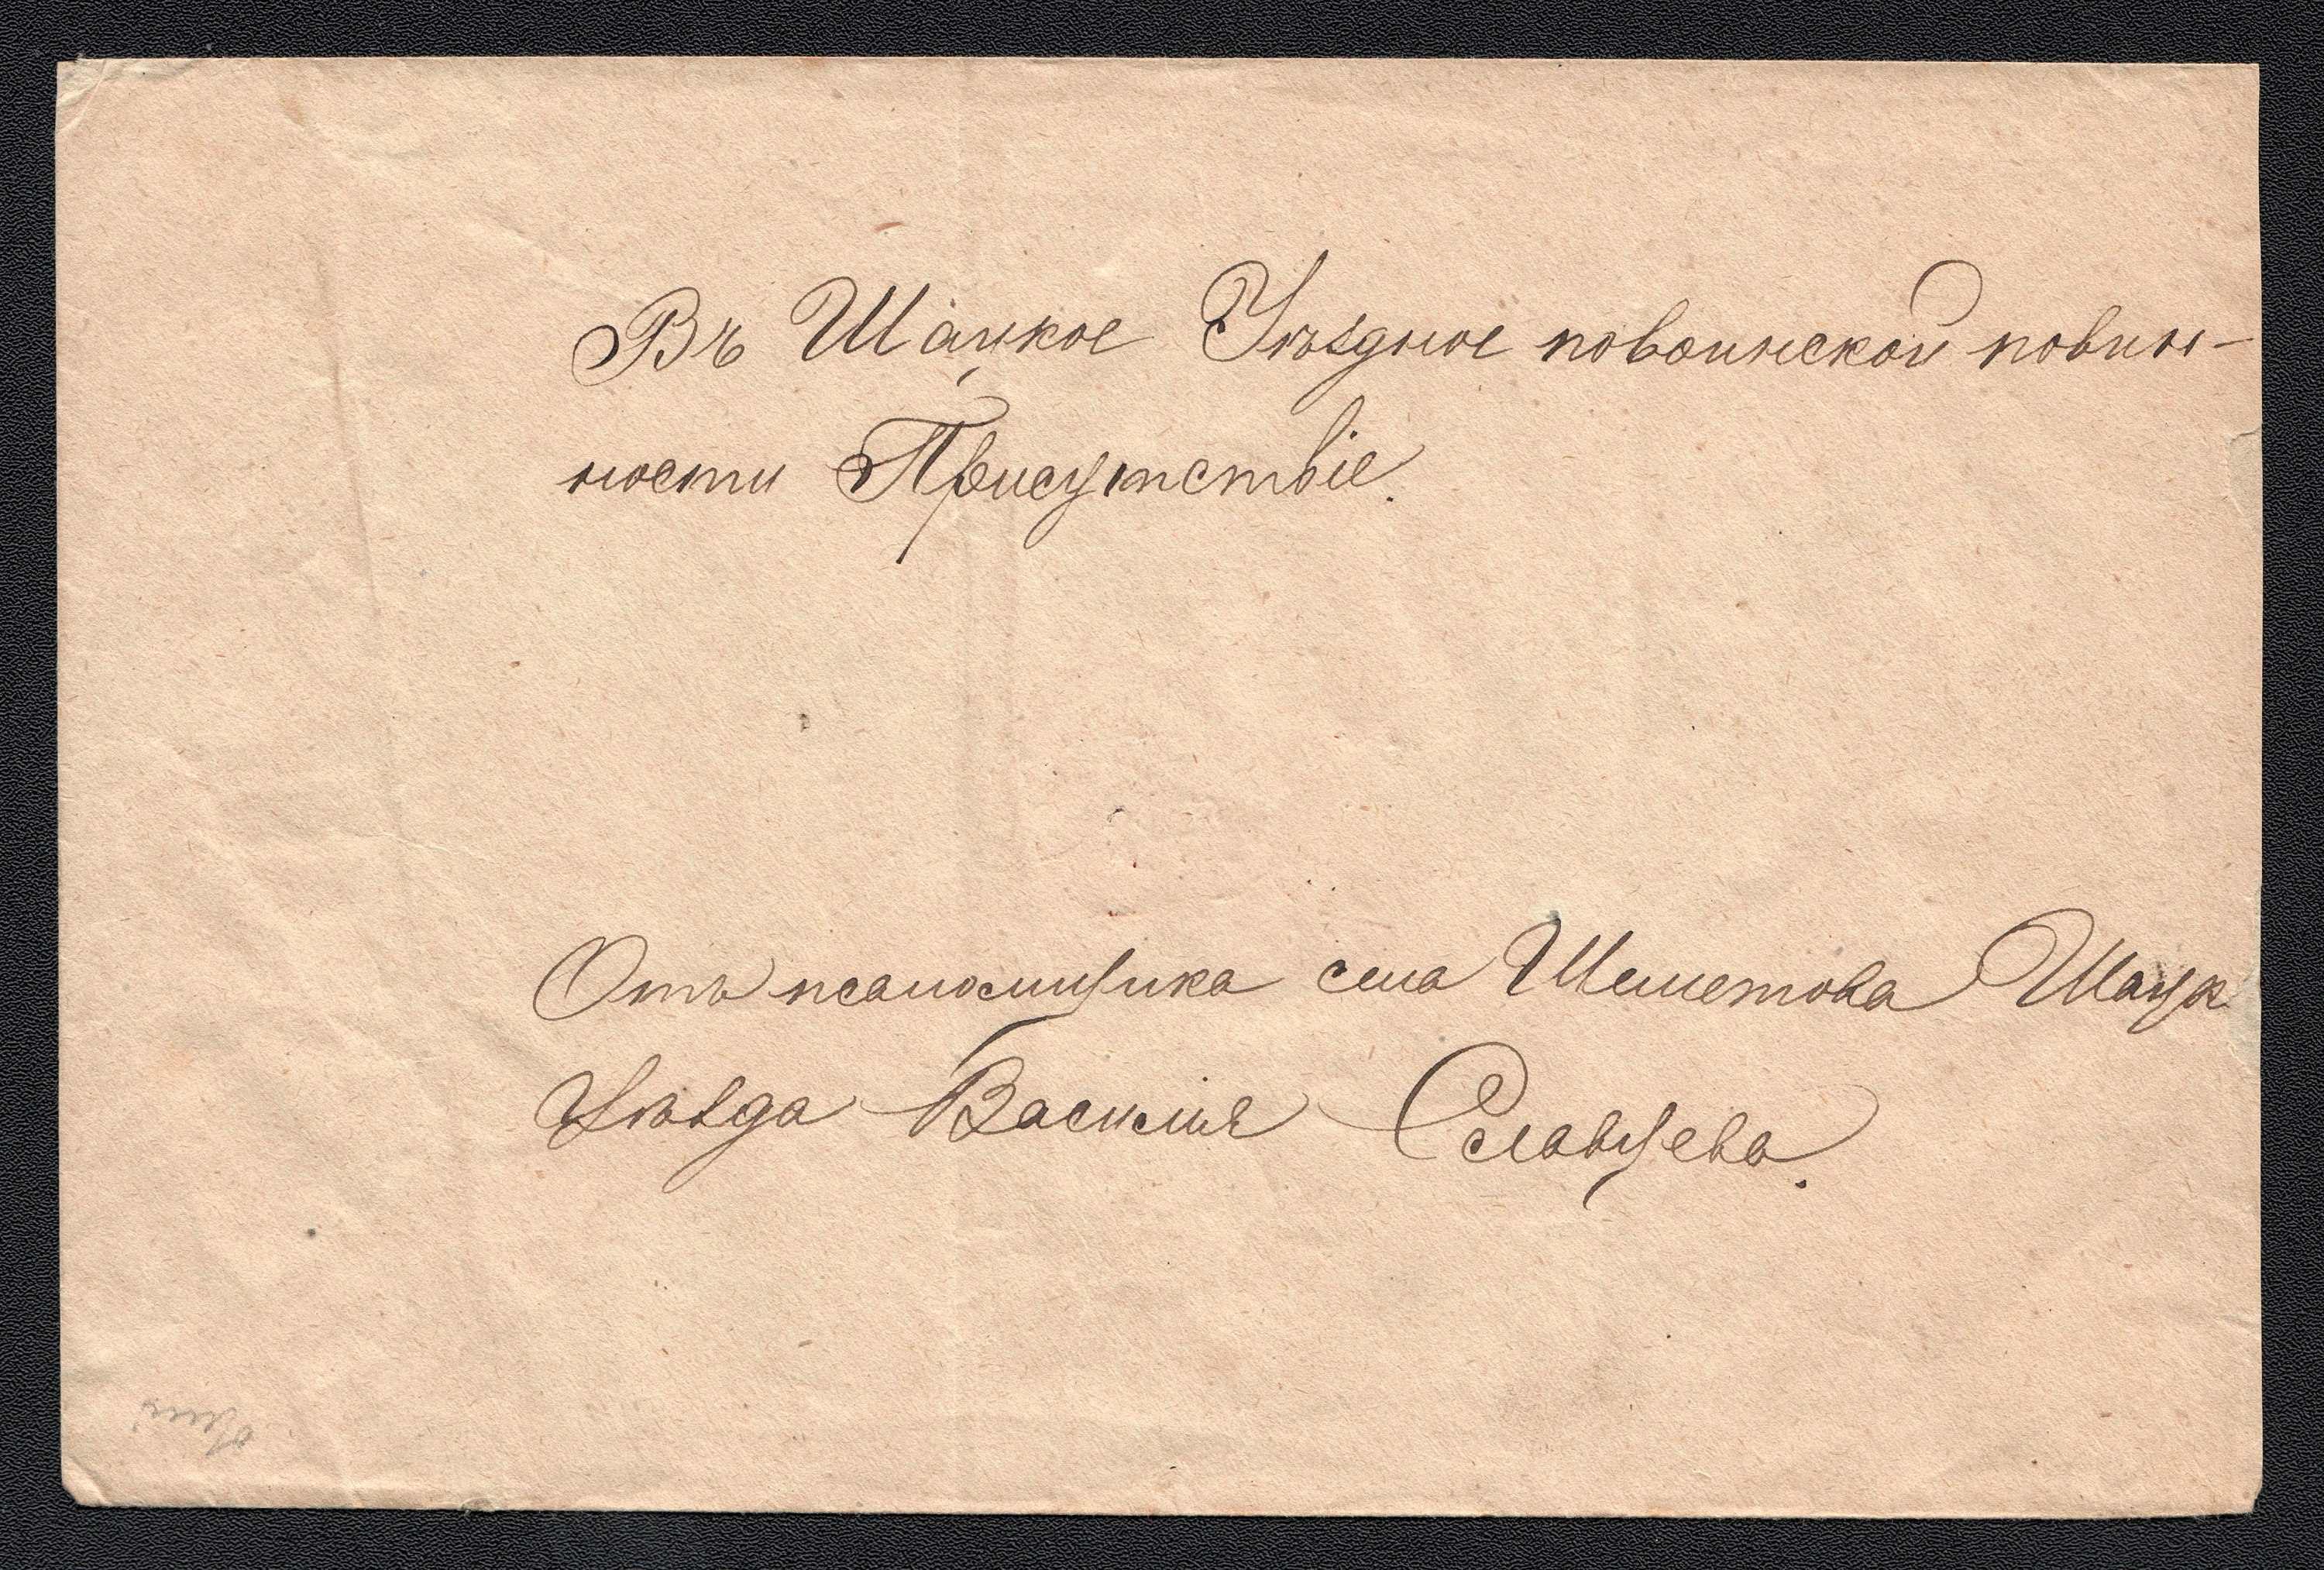 Въ Шацкое Уѣздное по воинской повин-
ности Присутствіе.
Отъ псаломщика села Шеметова Шацк
Уѣзда Василія Славцева.